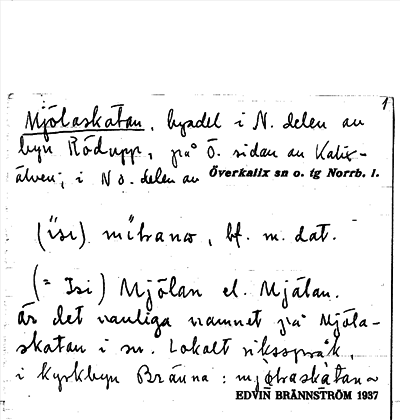 1
Mjölaskatan, bydel i N. delen av
byn Rödupp, på Ö. sidan av Kalix-
älven; i NO. delen av Överkalix sn o. tg Norrb. l.
(ísı) , bf. m. dat.
(= Isi) Mjölan el. Mjälan.
är det vanliga namnet på Mjöla-
skatan i sn. Lokalt riksspråk,
i kyrkbyn Bränna :
EDVIN BRÄNNSTRÖM 1937